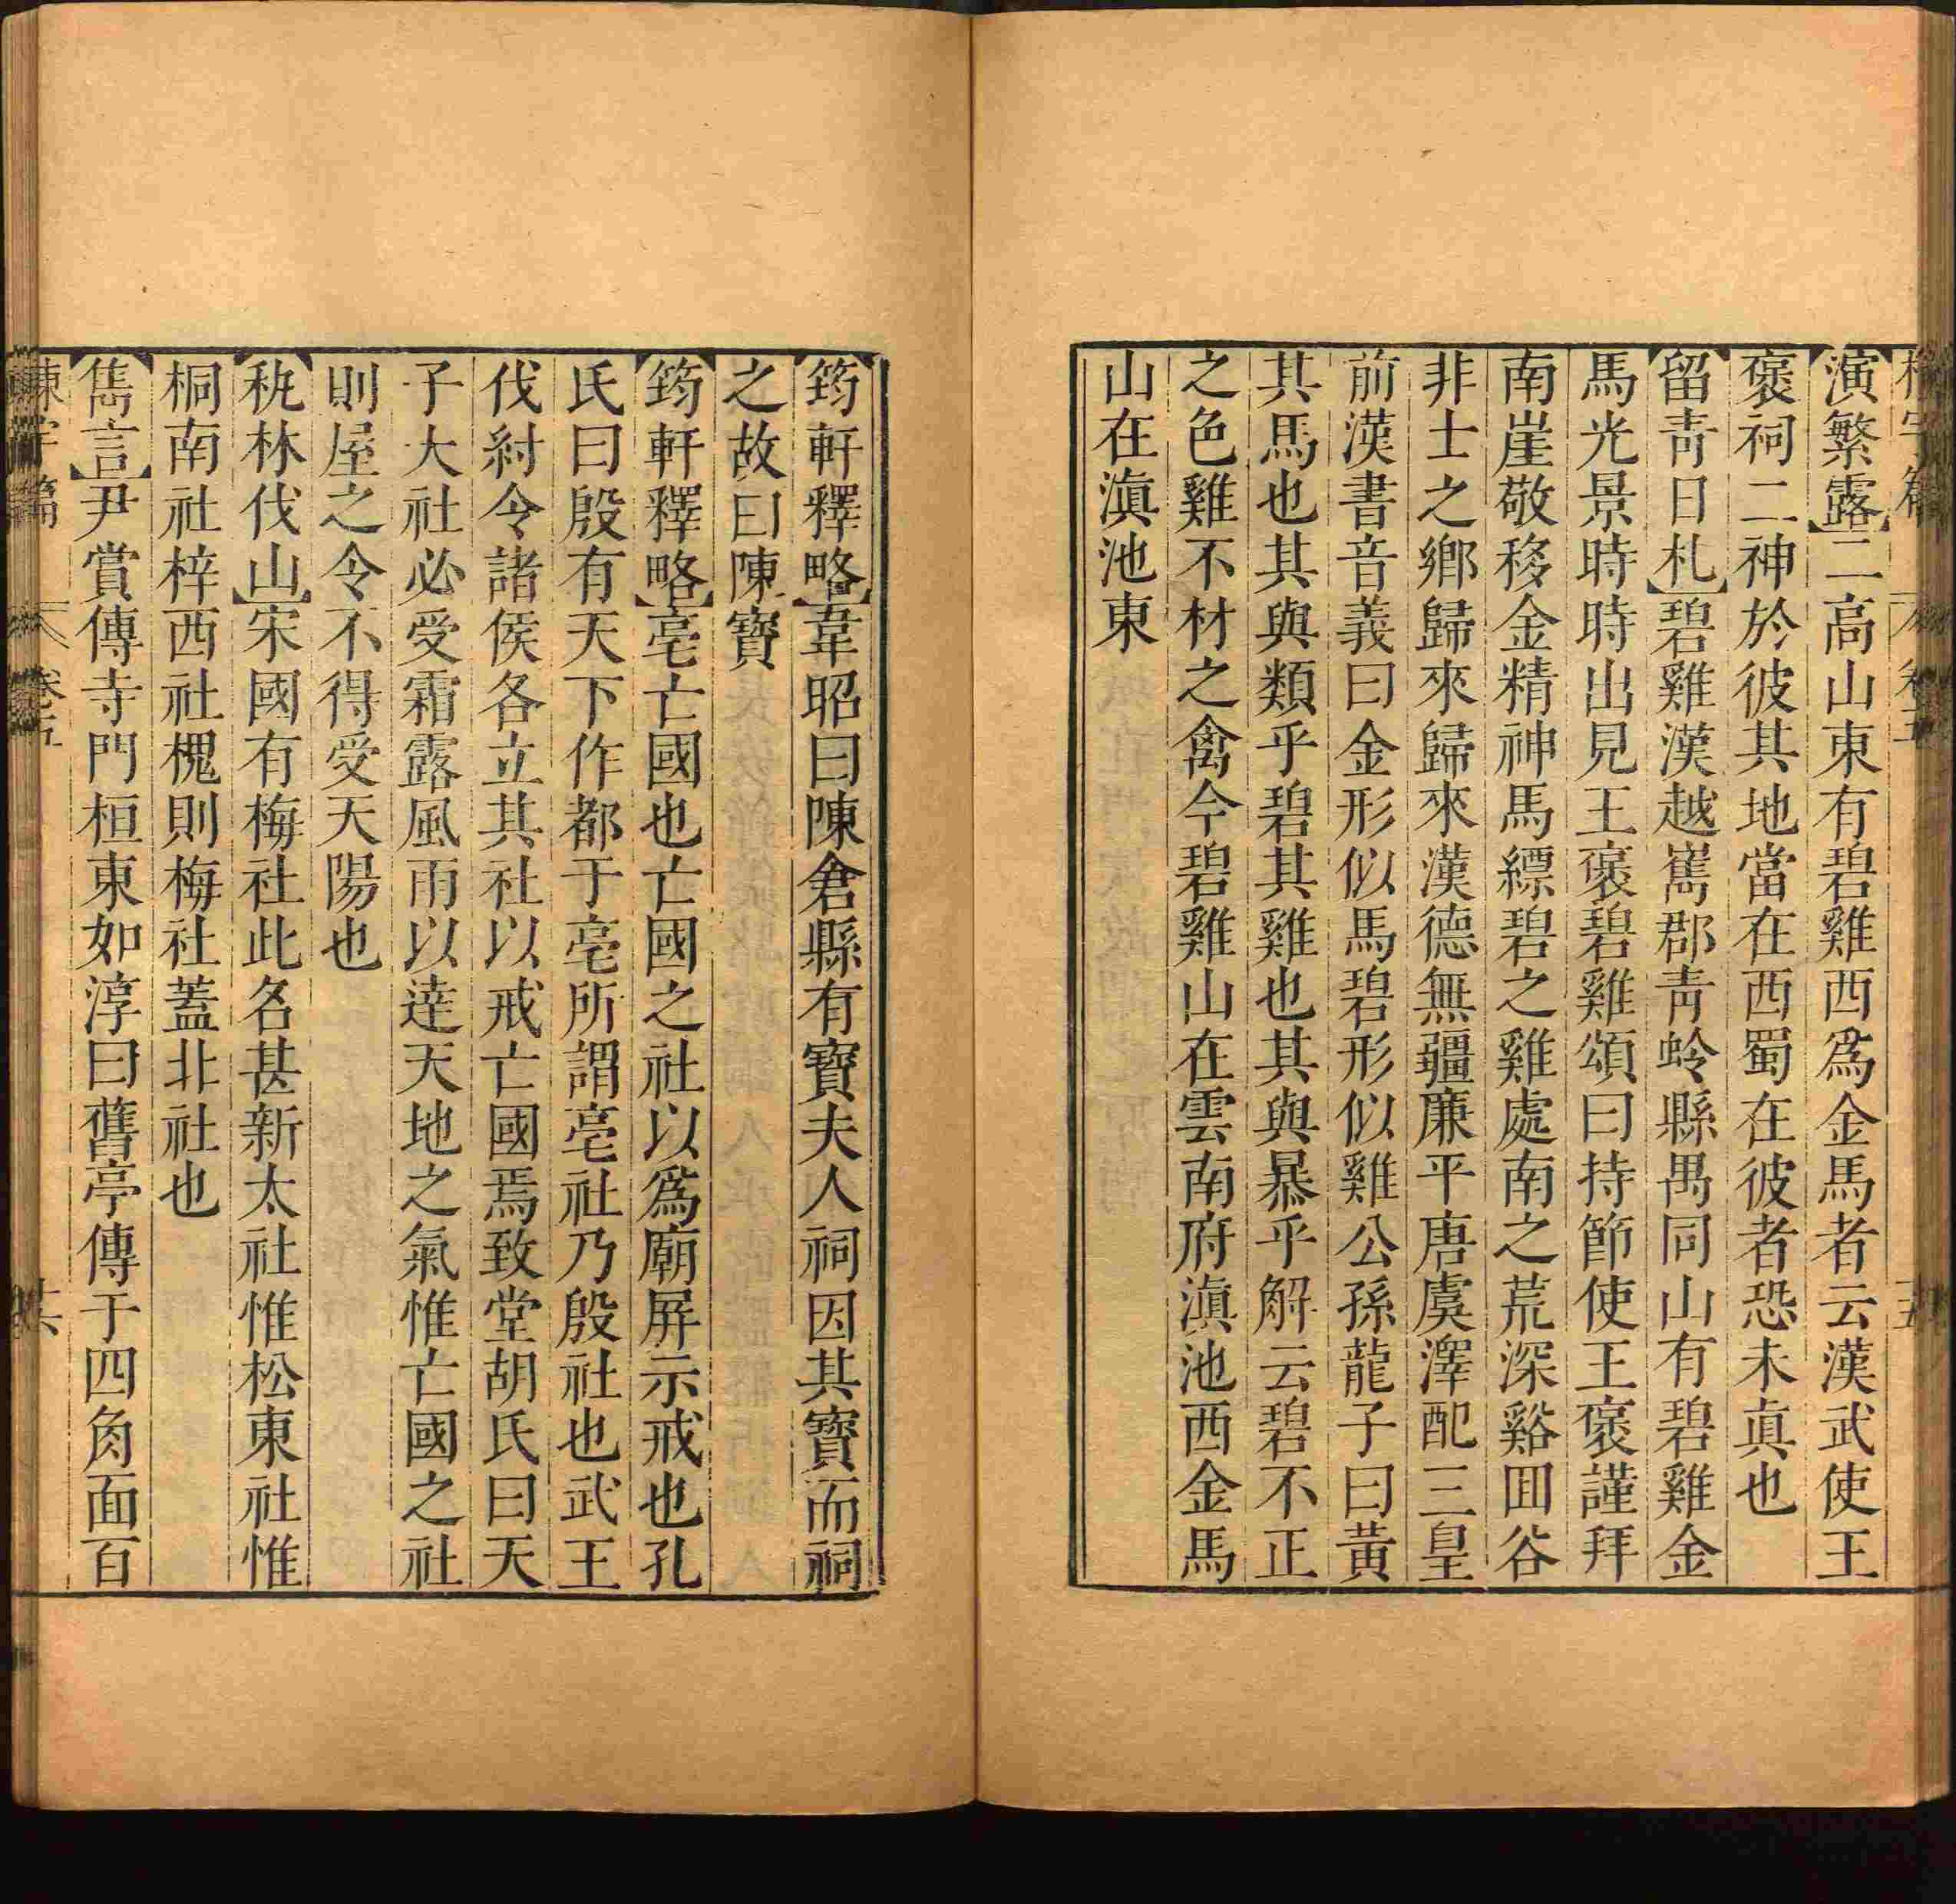 演繁露二高山東有碧雞西爲金馬者云漢武使王
褒祠二神於彼其地當在西蜀在彼者恐未眞也
留靑日札碧雞漢越嶲郡靑蛉縣禺同山有碧雞金
馬光景時時出見王褒碧雞頌曰持節使王褒謹拜
南崖敬移金精神馬縹碧之雞處南之荒深谿回谷
非士之鄉歸來歸來漢德無疆廉平唐虞澤配三皇
前漢書音義曰金形似馬碧形似雞公孫龍子曰黃
其馬也其與類乎碧其雞也其與暴乎解云碧不正
之色雞不材之禽今碧雞山在雲南府滇池西金馬
山在滇池東
筠軒釋略韋昭曰陳倉縣有寶夫人祠因其寶而祠
之故曰陳寶
筠軒釋略亳亡國也亡國之社以爲廟屏示戒也孔
氏曰殷有天下作都于亳所謂亳社乃殷社也武王
伐紂令諸侯各立其社以戒亡國焉致堂胡氏曰天
子大社必受霜露風雨以達天地之氣惟亡國之社
則屋之令不得受天陽也
秇林伐山宋國有梅社此名甚新太社惟松東社惟
桐南社梓西社槐則梅社蓋北社也
雋言尹賞傳寺門桓東如淳曰舊亭傳于四角面百